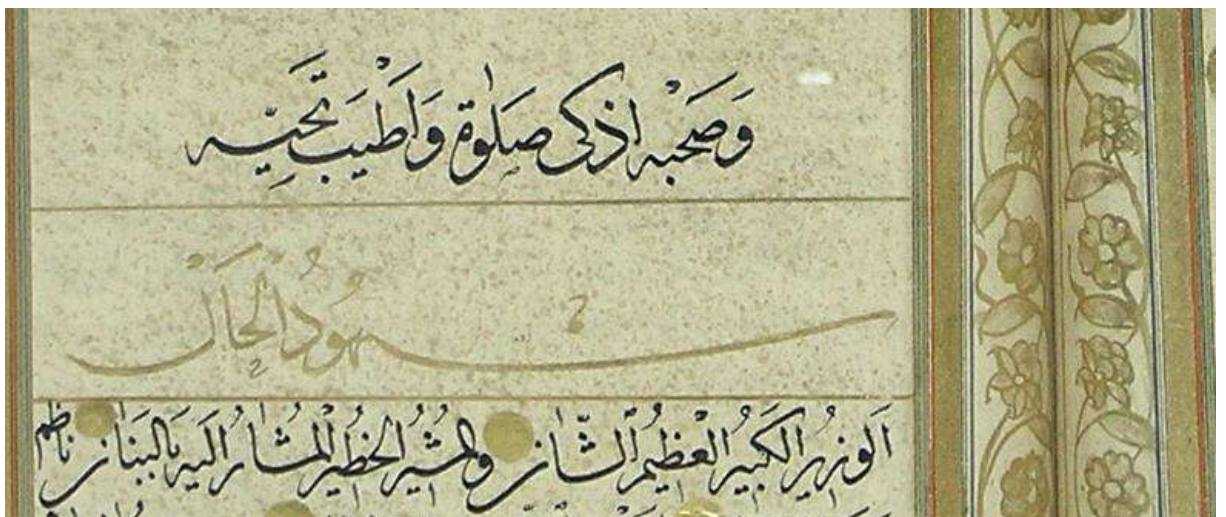 وَصَحْبِه اذكى صَلٰوة وَاَطْيَبَ تَحِيّه
شهُودُ الحَال
اَلوزيرُ الكَبيرُ العَظيمُ الشّان والمُشيرُ الخطيرُ المُشارُ اليهِ بالبنان ناظم